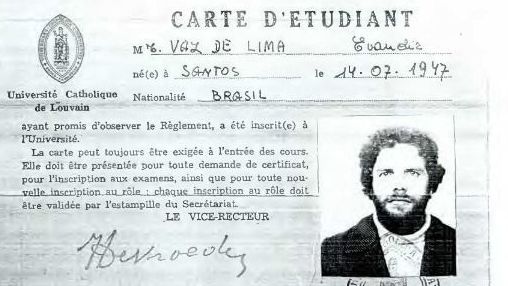 CARTE D'ETUDIANT
Mr. VAZ DE LIMA Evandir
né(e) à SANTOS le 14.07.1947
Université Catholique
de Louvain
Nationalité BRASIL
ayant promis d'observer le Règlement, a été inscrit(e) à
l'Université.
La carte peut toujours être exigée à l'entrée des cours.
Elle doit être présentée pour toute demande de certificat,
pour l'inscription aux examens, ainsi que pour toute nou-
velle inscription au rôle : chaque inscription au rôle doit
être validée par l'estampille du Secrétariat.
LE VICE-RECTEUR